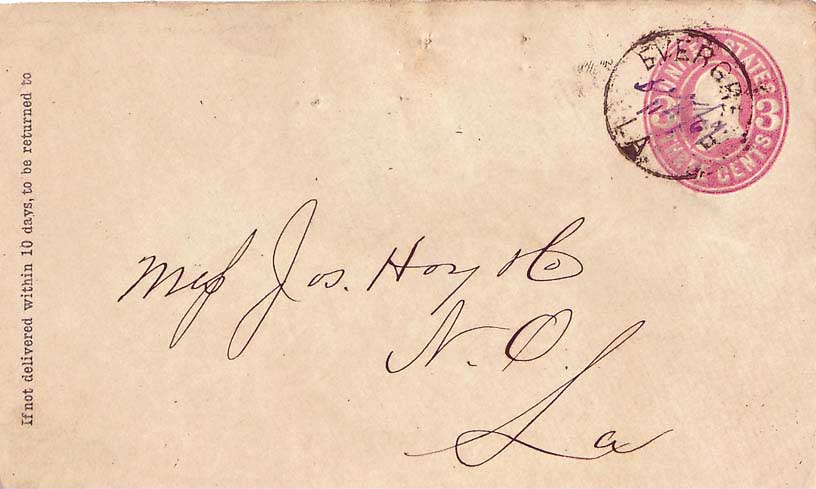 If not delivered within 10 days, to be returned to
EVERGR
LA
UNITED STATES
3 3
THREE CENTS
Mess Jos. Hoy & Co
N. O.
La